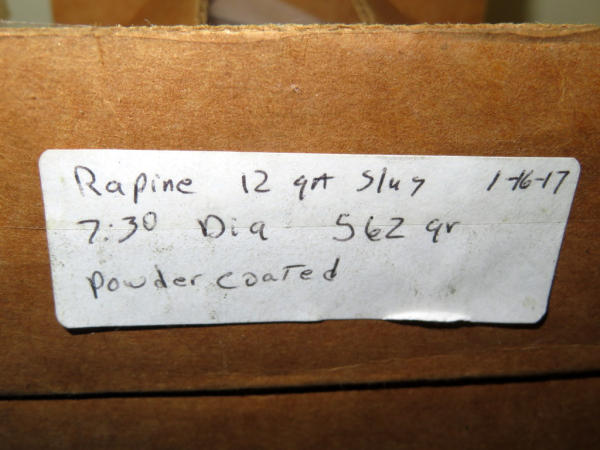 Rapine 12 ga Slug 1-16-17
7.30 Dia 562 gr
Powder coated